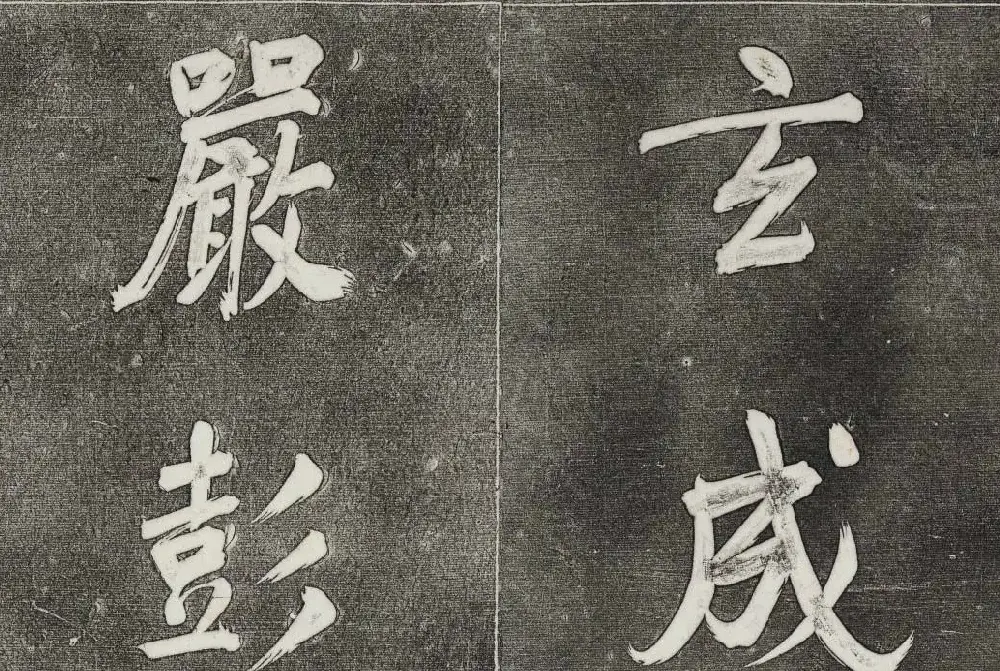 玄成
嚴彭